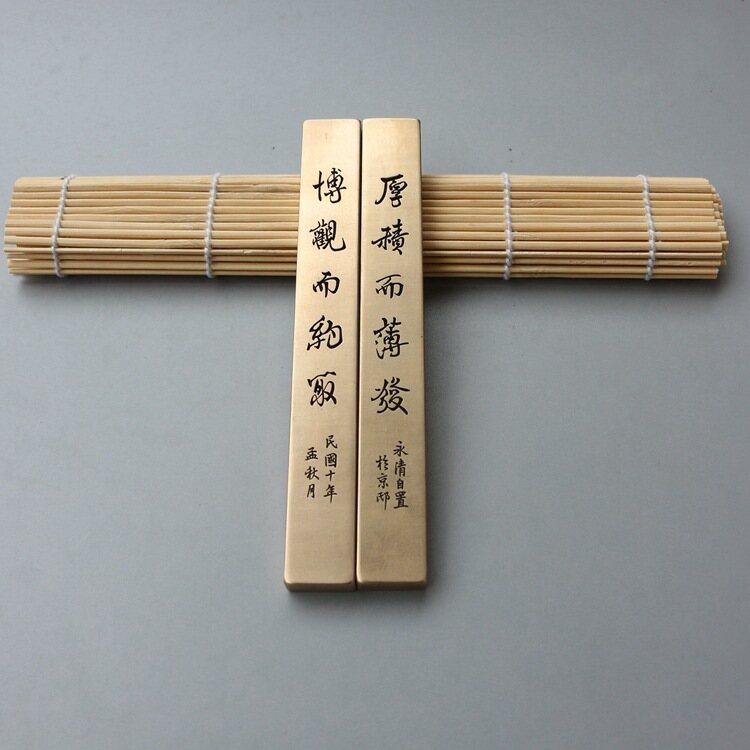 博觀而約取
民國十年
孟秋月
厚積而薄發
永清自置
於京邸